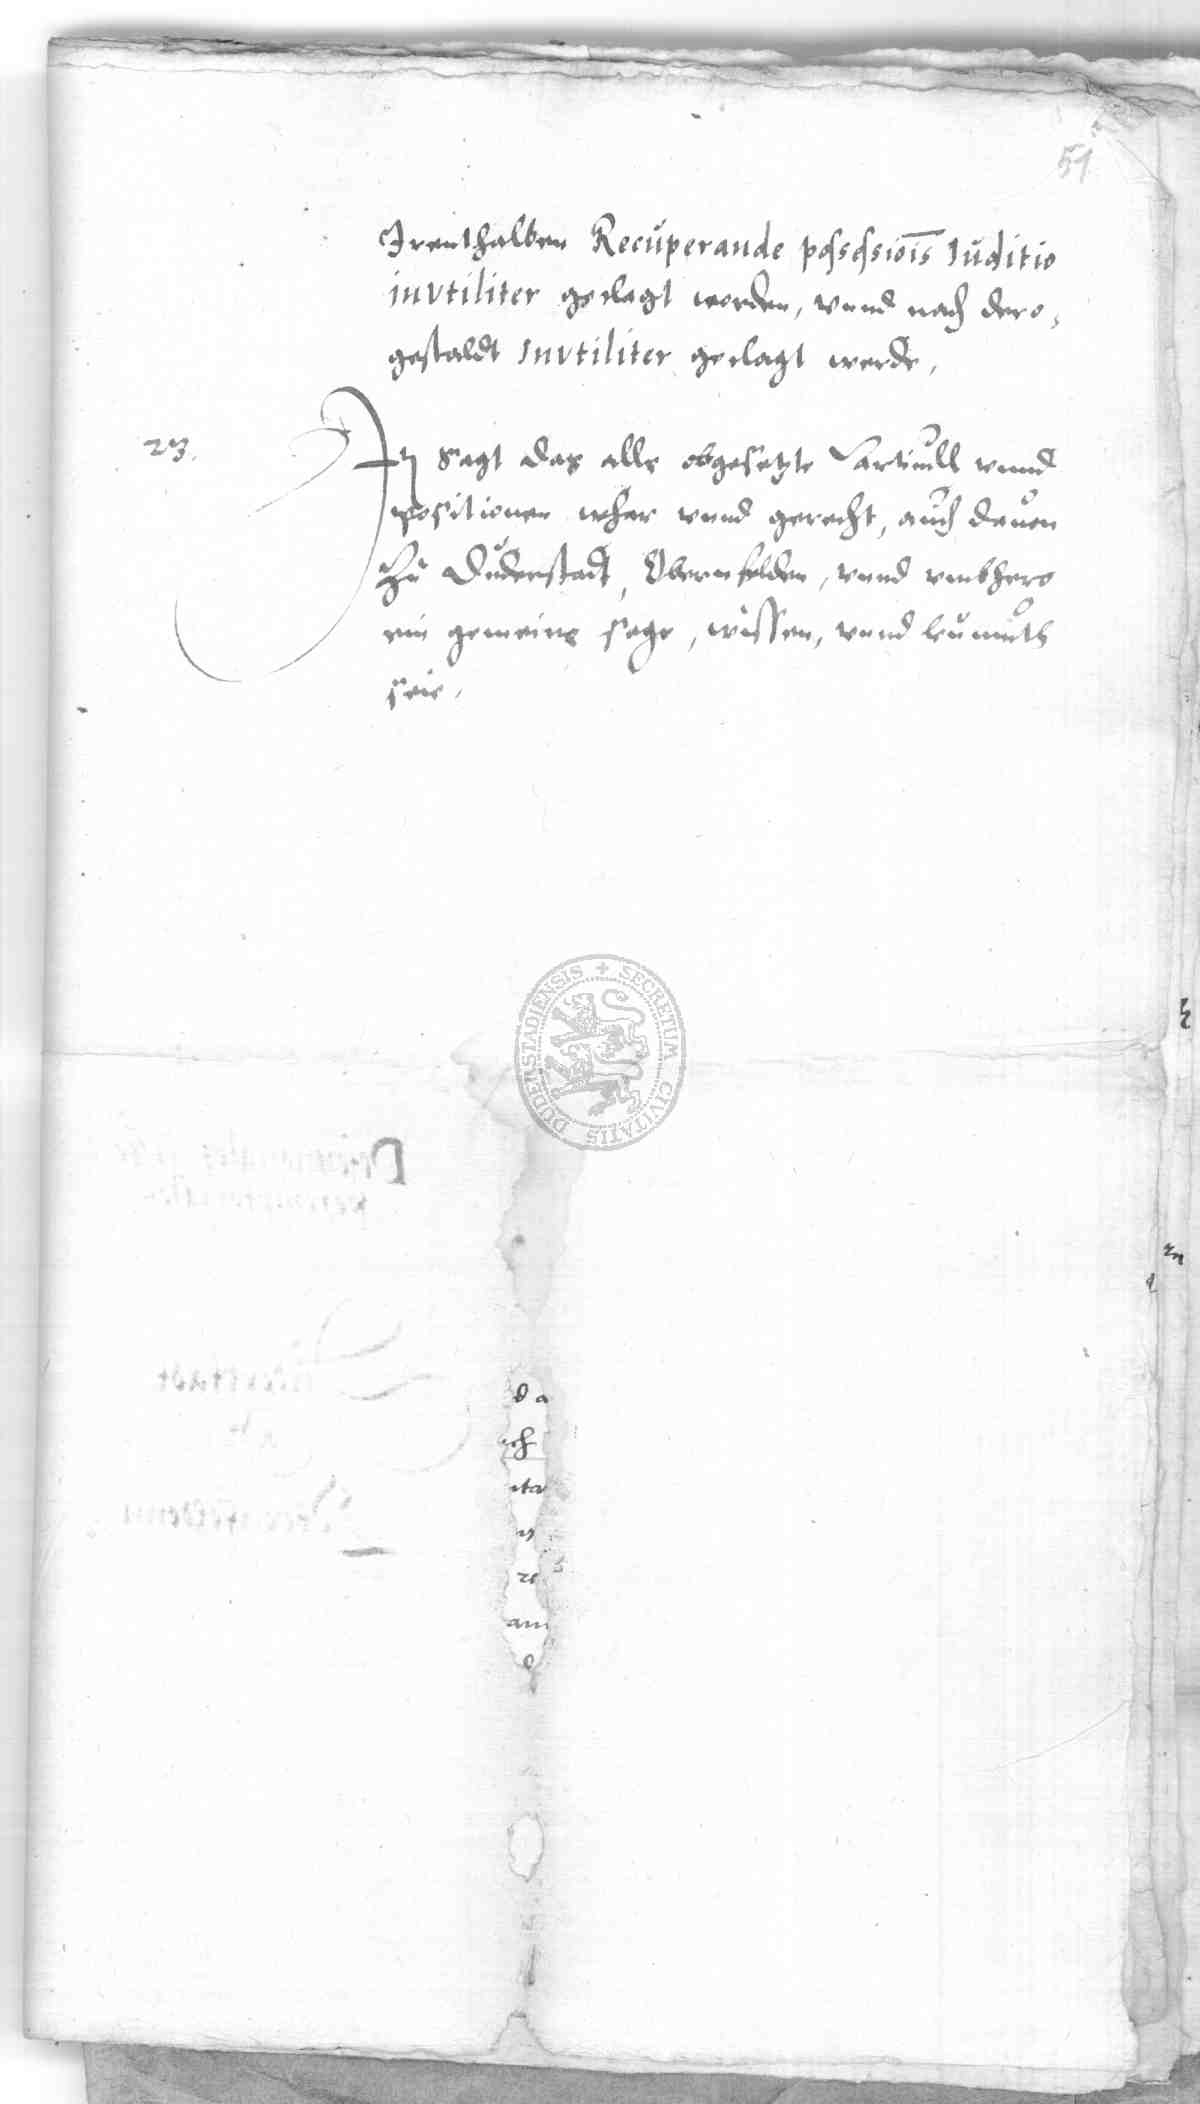 51
Irenthalben Recuperande possessiois Iuditio
invtiliter geclagt worden, vnnd nach dero,
gestaldt Invtiliter geclagt werde,
23.
It sagt das alle obgesetzte Carticull vnnd
positionen whar vnnd gerecht, auch dauon
zu Duderstadt, Obernfelden, vnnd vmbhero
ein gemeine sage, wissen, vnnd leumuth
seie,
DUDERSTADIENSIS + SECRETUM CIVITATIS
d a
ch
ita
re
am
o